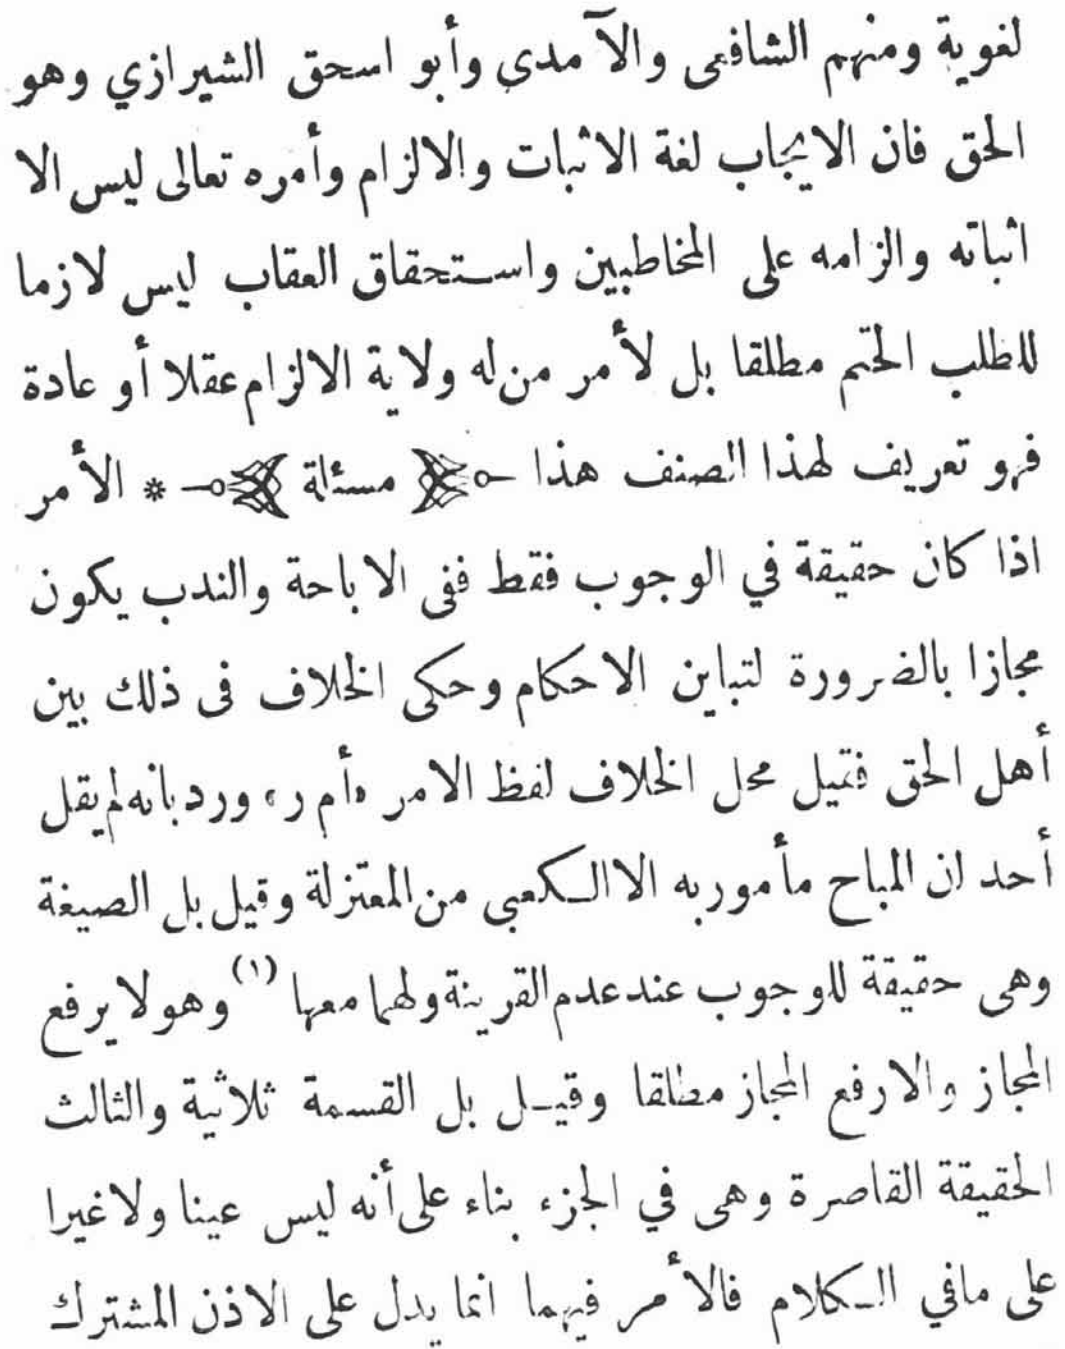 لغوية ومنهم الشافعى والآمدى وأبو اسحق الشيرازي وهو
الحق فان الايجاب لغة الاثبات والالزام وأمره تعالى ليس الا
اثباته والزامه على المخاطبين واستحقاق العقاب ليس لازما
للطلب الحتم مطلقا بل لأمر من له ولاية الالزام عقلا أو عادة
فهو تعريف لهذا الصنف هذا مسئلة * الأمر
اذا كان حقيقة في الوجوب فقط ففى الاباحة والندب يكون
مجازا بالضرورة لتباين الاحكام وحكى الخلاف فى ذلك بين
أهل الحق فقيل محل الخلاف لفظ الامر «أم ر» ورد بانه لم يقل
أحد ان المباح مأمور به الا الكعبى من المعتزلة وقيل بل الصيغة
وهى حقيقة للوجوب عند عدم القرينة ولهما معها (١) وهو لا يرفع
المجاز والا رفع المجاز مطلقا وقيل بل القسمة ثلاثية والثالث
الحقيقة القاصرة وهى في الجزء بناء على أنه ليس عينا ولا غيرا
على مافي الكلام فالأمر فيهما انما يدل على الاذن المشترك